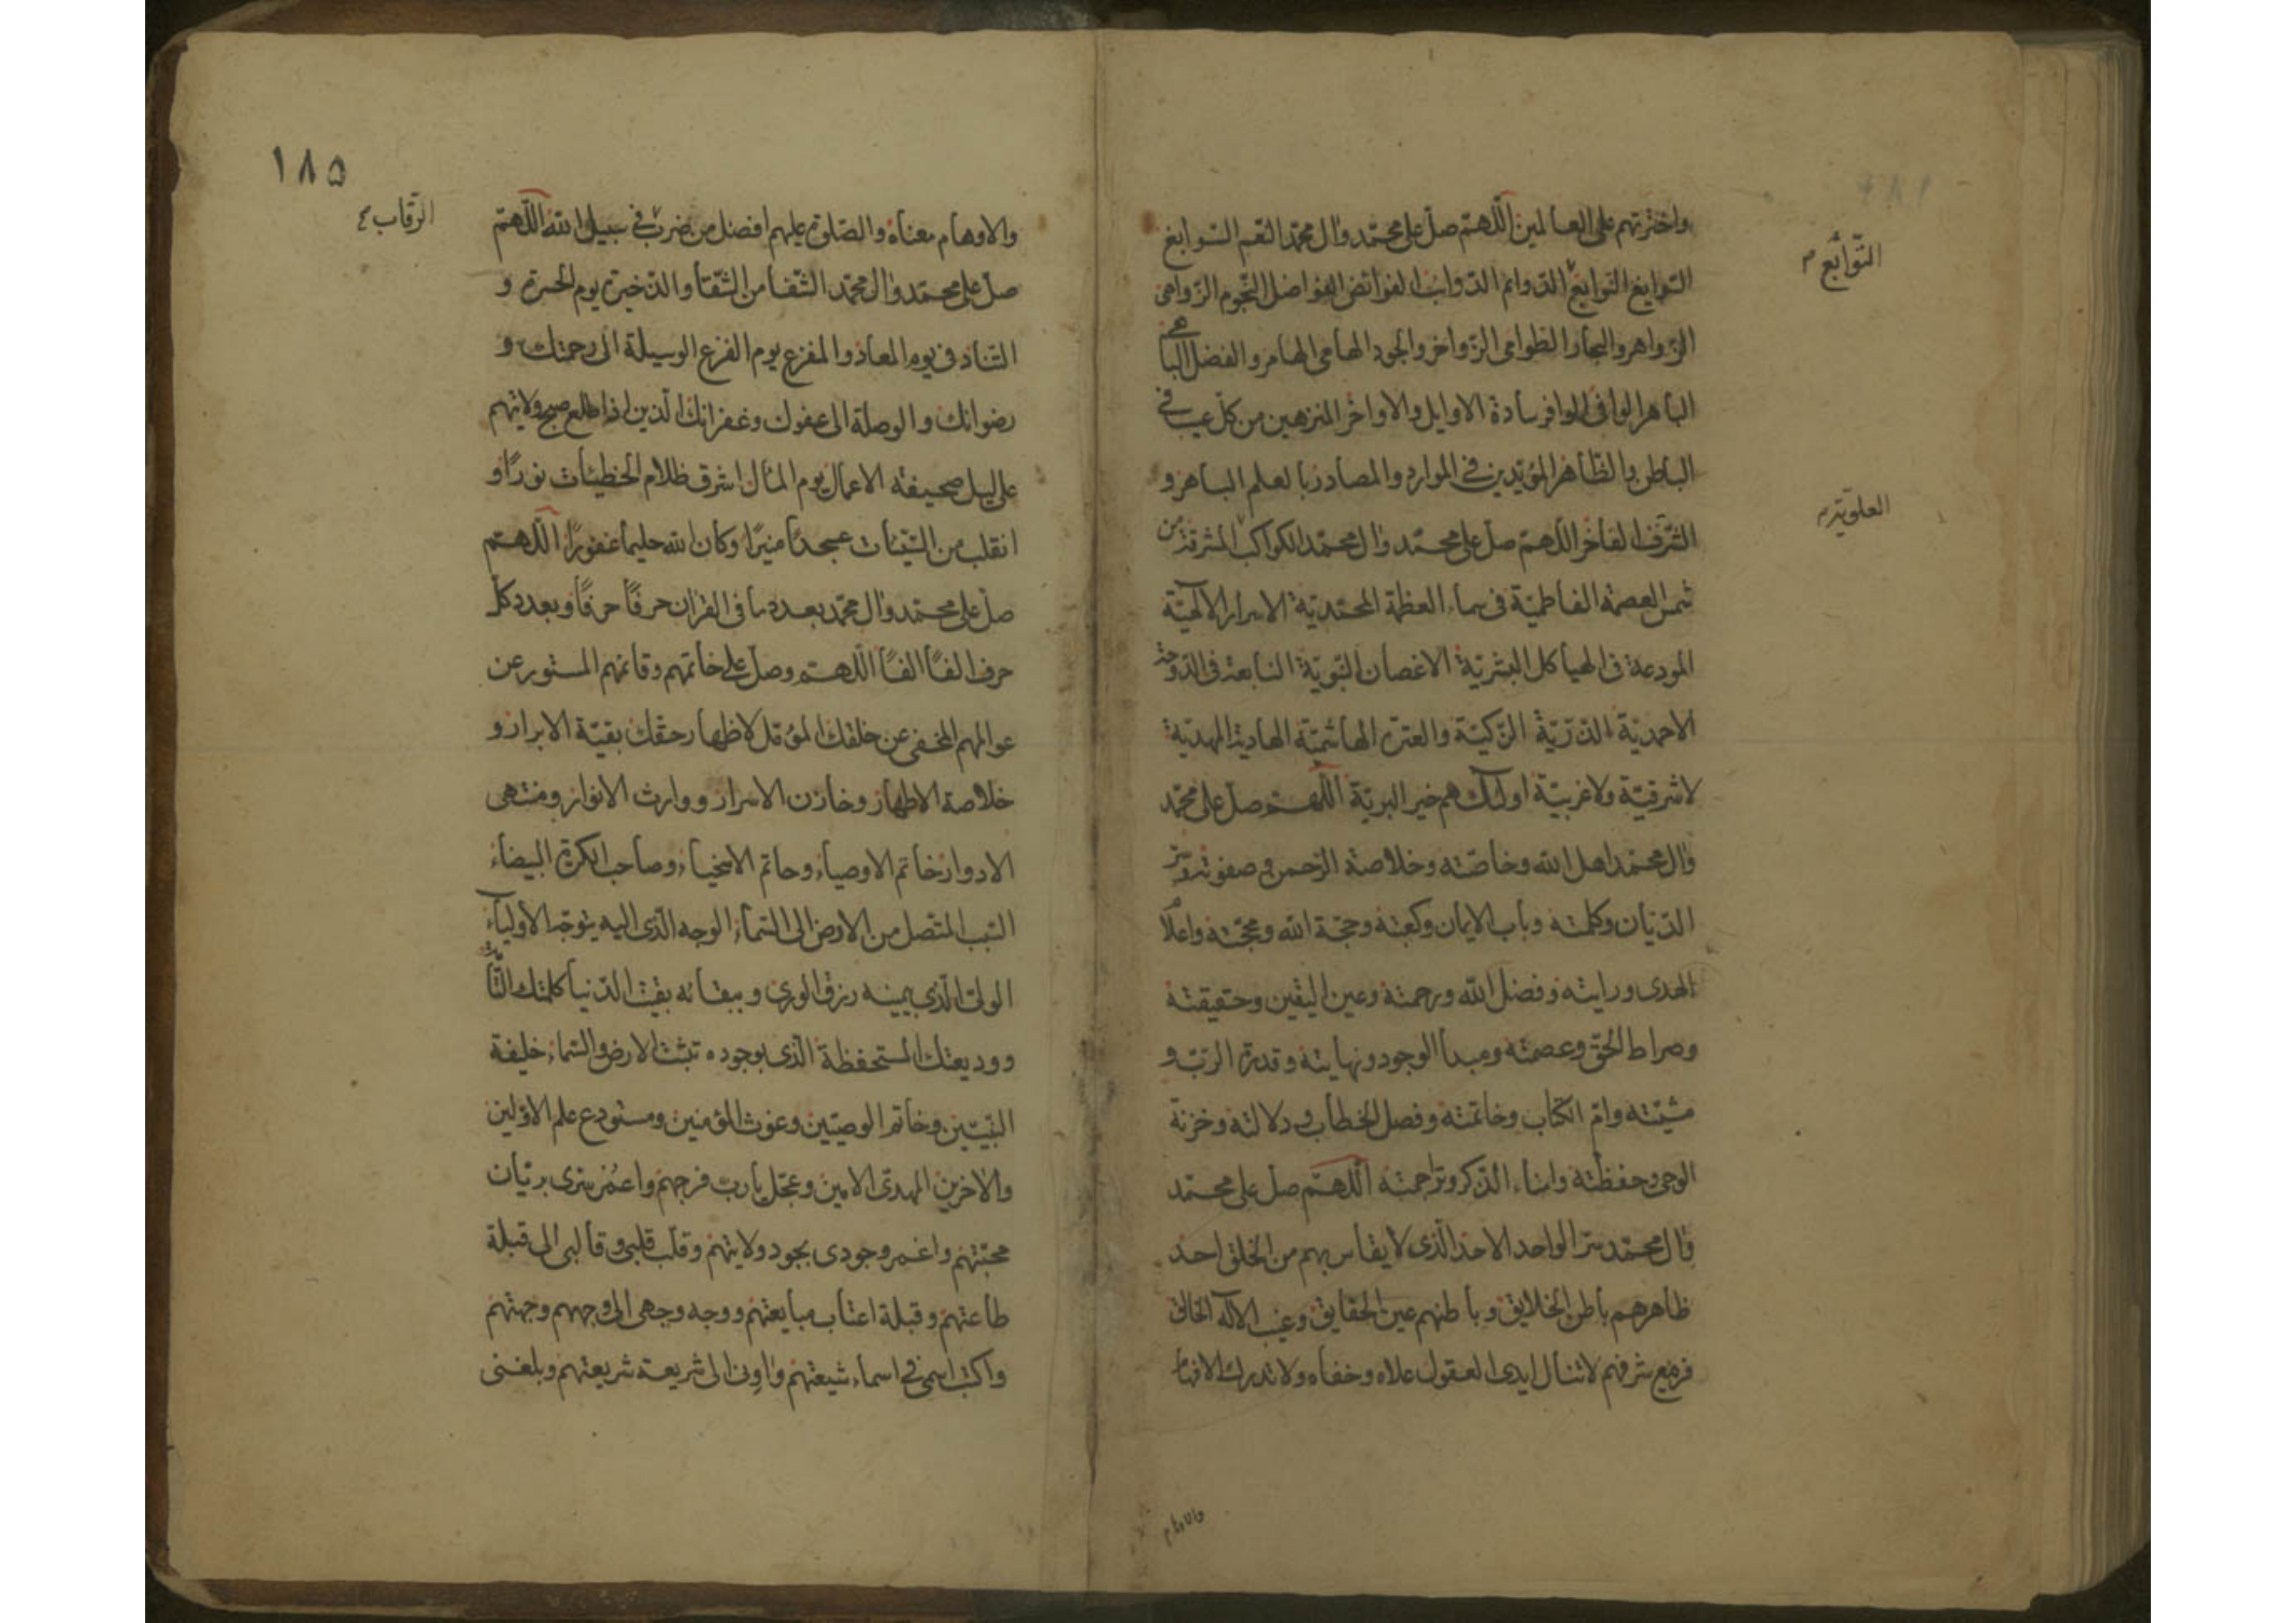 واخترتهم على العالمين اللّهمّ صلّ على محمّد وال محمّد النعم السّوابغ
التّوابع م
الدّوائم الفواضل النجوم الزّواهى
الزّواهر والبحار الطوامى الزّواخر والجود الهامى الهامر والفضل الباهى
الباهر الوافى الوافر سادة الاوايل والاواخر المنزهين من كلّ عيب فى
الباطن والظّاهر المؤيّدين فى الموارد والمصادر بالعلم الباهر و
العلويّة م
الشّرف الفاخر اللّهمّ صلّ على محمّد وال محمّد الكواكب المشرقة من
شمس العصمة الفاطميّة فى سماء العظمة المحمّديّة الاسرار الالهيّة
المودعة فى الهياكل البشريّة الاغصان النّبويّة النابعة فى الدّوحة
الاحمديّة الذّرّيّة الزّكيّة والعترة الهاشميّة الهادية المهديّة
لا شرقيّة ولا غربيّة اولئك هم خير البريّة اللّهمّ صلّ على محمّد
وال محمّد اهل الله وخاصّته وخلاصة الرّحمن وصفوته وسرّ
الدّيّان وكلمته وباب الايمان وكعبته وحجّة الله ومحجّته واعلام
الهدى ورايته وفضل الله ورحمته وعين اليقين وحقيقته
وصراط الحقّ وعصمته ومبدأ الوجود ونهايته وقدرة الرّبّ و
مشيّته وامّ الكتاب وخاتمته وفصل الخطاب ودلالته وخزنة
الوحى وحفظته وامناء الذّكر وتراجمته اللّهمّ صلّ على محمّد
وال محمّد سرّ الواحد الاحد الّذى لا يقاس بهم من الخلق احد
ظاهرهم باطن الخلايق وباطنهم عين الحقايق وغيب الاله الخالق
فرفيع شرفهم لا تنال ايدى العقول علاه وخفاه ولا تدرك الافهام
والاوهام
١٨٥
والاوهام معناه والصّلوة عليهم افضل من ضرب فى سبيل الله اللّهمّ
الرّقاب م
صلّ على محمّد وال محمّد الشّفا من الشّقا والذّخيرة يوم الحسرة و
التناد فى يوم المعاد والمفزع يوم الفزع الوسيلة الى رحمتك و
رضوانك والوصلة الى عفوك وغفرانك الّذين اذا طلع صبح ولايتهم
على ليل صحيفة الاعمال يوم المآل اشرق ظلام الخطيئات نورًا و
انقلب من السّيّئات عسجدًا منيرًا وكان الله حليما غفورًا اللّهمّ
صلّ على محمّد وال محمّد بعدد ما فى القران حرفًا حرفًا وبعدد كلّ
حرف الفًا الفًا اللّهمّ وصلّ على خاتمهم وقائمهم المستور عن
عوالمهم المخفى عن خلقك المؤمّل لاظهار حقّك بقيّة الابرار و
خلاصة الاطهار وخازن الاسرار ووارث الانوار ومنتهى
الادوار خاتم الاوصياء وحاتم الاسخياء وصاحب الكرّة البيضاء
السّبب المتّصل من الارض الى السّماء الوجه الّذى اليه يتوجّه الأولياء
الولىّ الّذى بيمينه رزق الورى وببقائه بقيت الدّنيا كلمتك التّامّة
ووديعتك المستحفظة الّذى بوجوده تثبت الارض والسّماء خليفة
النّبيّين وخاتم الوصيّين وغوث المؤمنين ومستودع علم الاوّلين
والاخرين المهدىّ الامين وعجّل يا ربّ فرجهم واعمر سرّى بريّان
محبّتهم واغمر وجودى بجود ولايتهم وقلّب قلبى وقالبى الى قبلة
طاعتهم وقبلة اعتاب مبايعتهم ووجه وجهى الى وجههم وجهتهم
واكتب اسمى فى اسماء شيعتهم واونى الى شريعة شريعتهم وبلغنى